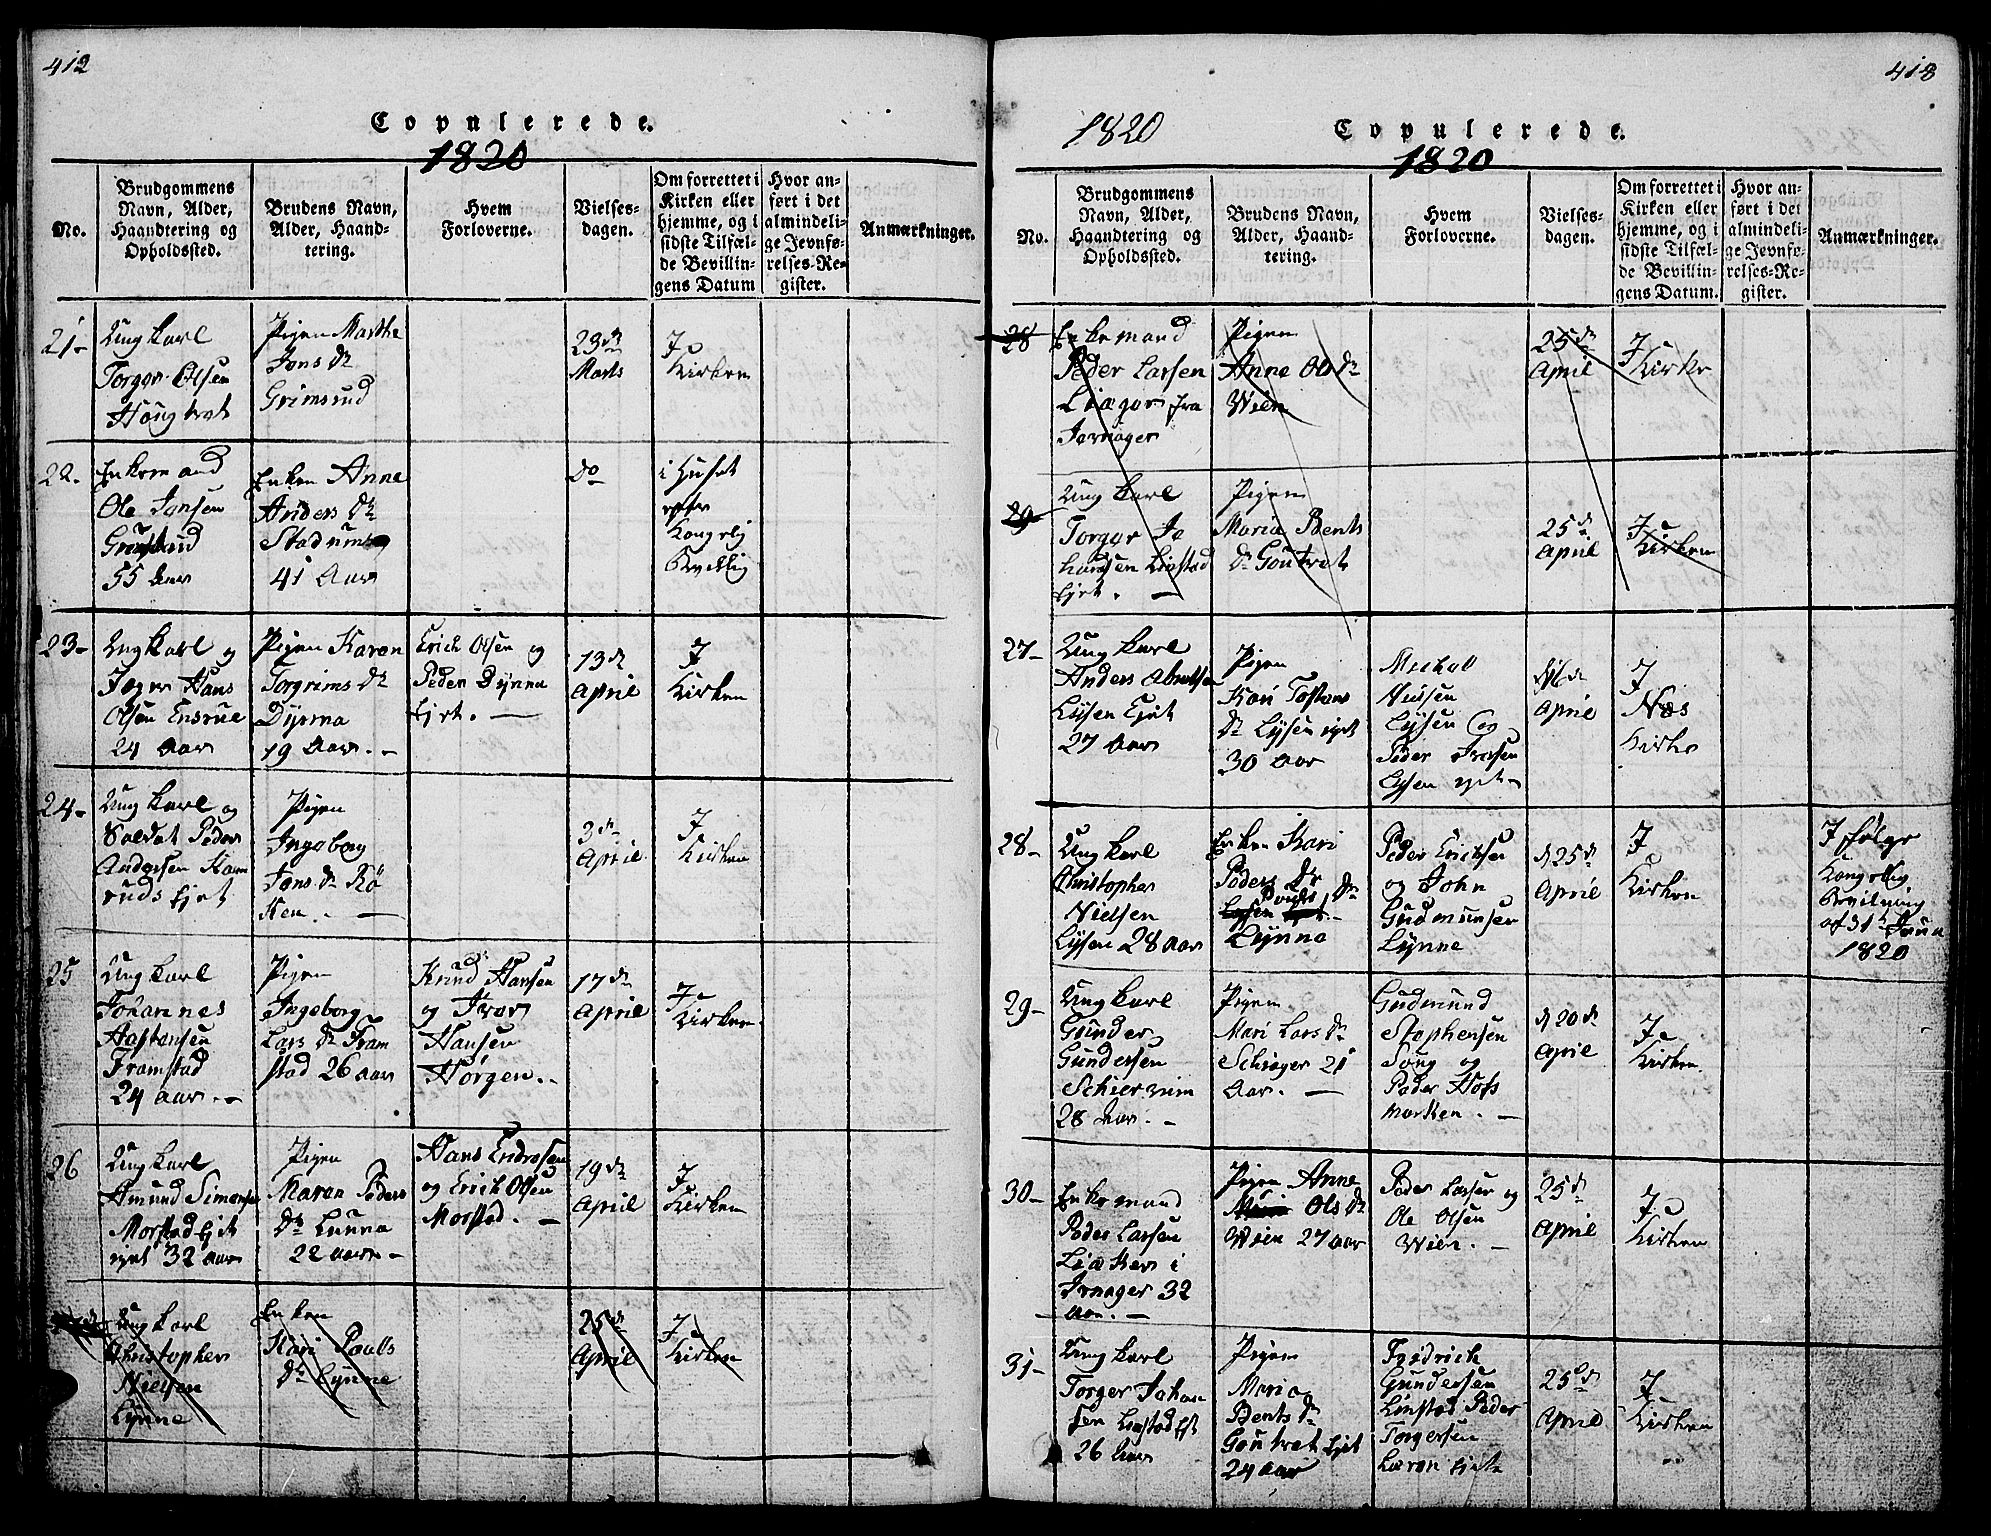 412
Copulerede.
1820
No.
Brudgommens
Navn, Alder,
Haandtering og
Opholdssted.
Brudens Navn,
Alder, Haand-
tering.
Hvem
Forloverne.
Vielses-
dagen.
Om forrettet i
Kirken eller
hjemme, og i
sidste Tilfæl-
de Bevillin-
gens Datum
Hvor an-
ført i det
almindeli-
ge Jevnfø-
relses-Re-
gister.
Anmærkninger.
21-
Ungkarl
Torger Olsen
Pigen Marthe
Jons Dr
Grimsrud
23de
Marts
I
Kirken
22.
Enkemand
Ole Jonsen
55 Aar
Enken Anne
Anders Dr
41 Aar
do
i Huset
efter
Kongelig
23-
Ungkarl og
Jeger Hans
Olsen Ensrue
24 Aar
Pigen Karen
Torgrims Dr
Dynna
19 Aar. -
Erich Olsen og
Peder Dynna
Ejet. -
13de
April
I
Kirken
24-
Ungkarl og
Soldat Peder
Andersen
Pigen
Ingeborg
Jons Dr Rø
Ken. -
3de
April
I
Kirken
25
Ungkarl
Johannes
Framstad
24 Aar. -
Pigen
Ingeborg
Lars Dr Fram
stad 26 Aar
Knud Hansen
og Iver
Hansen
Hørgen. -
17de
April
I
Kirken
26
Ungkarl
Amund Simensen
Morstad Ejet
32 Aar
Pigen
Maren Peders
Dr Lunna
22 Aar -
Hans Endresen
og Erich Olsen
Morstad. -
19de
April
I
Kirken
Ungkarl
Christopher
Nielsen
Lynne
Enken
Kari Pouls
Dr Lynne
25de
April
I
Kirken
413
1820
Copulerede.
1820
No.
Brudgommens
Navn, Alder,
Haandtering og
Opholdssted.
Brudens Navn,
Alder, Haand-
tering.
Hvem
Forloverne.
Vielses-
dagen.
Om forrettet i
Kirken eller
hjemme, og i
sidste Tilfæl-
de Bevillin-
gens Datum.
Hvor an-
ført i det
almindeli-
ge Jevnfø-
relses-Re-
gister.
Anmærkninger.
28
Enkemand
Peder Larsen
fra
Jevnager
Pigen
Anne Ols Dr
Wien
25de
April
I
Kirke
29
Ungkarl
Torger Jo
hansen Liestad
Ejet. -
Pigen
Maria Bents
Dr Gontvet
25de
April
I
Kirken
27-
Ungkarl
Anders
Lysen Ejet
27 Aar
Pigen
Kari Tostens
Dr Lysen
30 Aar
Michel
Lysen og
Peder Iversen
Lysen
16de
April
I
Næs
Kirke
28-
Ungkarl
Christopher
Nielsen
Lysen 28 Aar
Enken Kari
Peders Dr
Pouls Dr
Lynne
Peder Erichsen
og John
Gudmunsen
Lynne
d 25de
April
I
Kirken
I følge
Kongelig
Bevilning
af 31te
1820
29-
Ungkarl
Gunder
Gundersen
28 Aar. -
Pigen
Mari Lars Dr
Schiager 21
Aar. -
Gudmund
Stephensen
Soug og
Peder Hofs
marken. -
d 20de
April
I
Kirken
30-
Enkemand
Peder Larsen
i
Jevnager 32
Aar. -
Pigen Anne
Ols Dr
Wien 27 Aar
Peder Larsen og
Ole Olsen
Wien. -
25de
April
I
Kirken
31-
Ungkarl
Torger Johan
sen Liestad Ejt
26 Aar
Pigen
Maria
Bents Dr
Gontvet Ejet
24 Aar
Fredrich
Gundersen
Peder
Torgersen
25de
April
I
Kirken